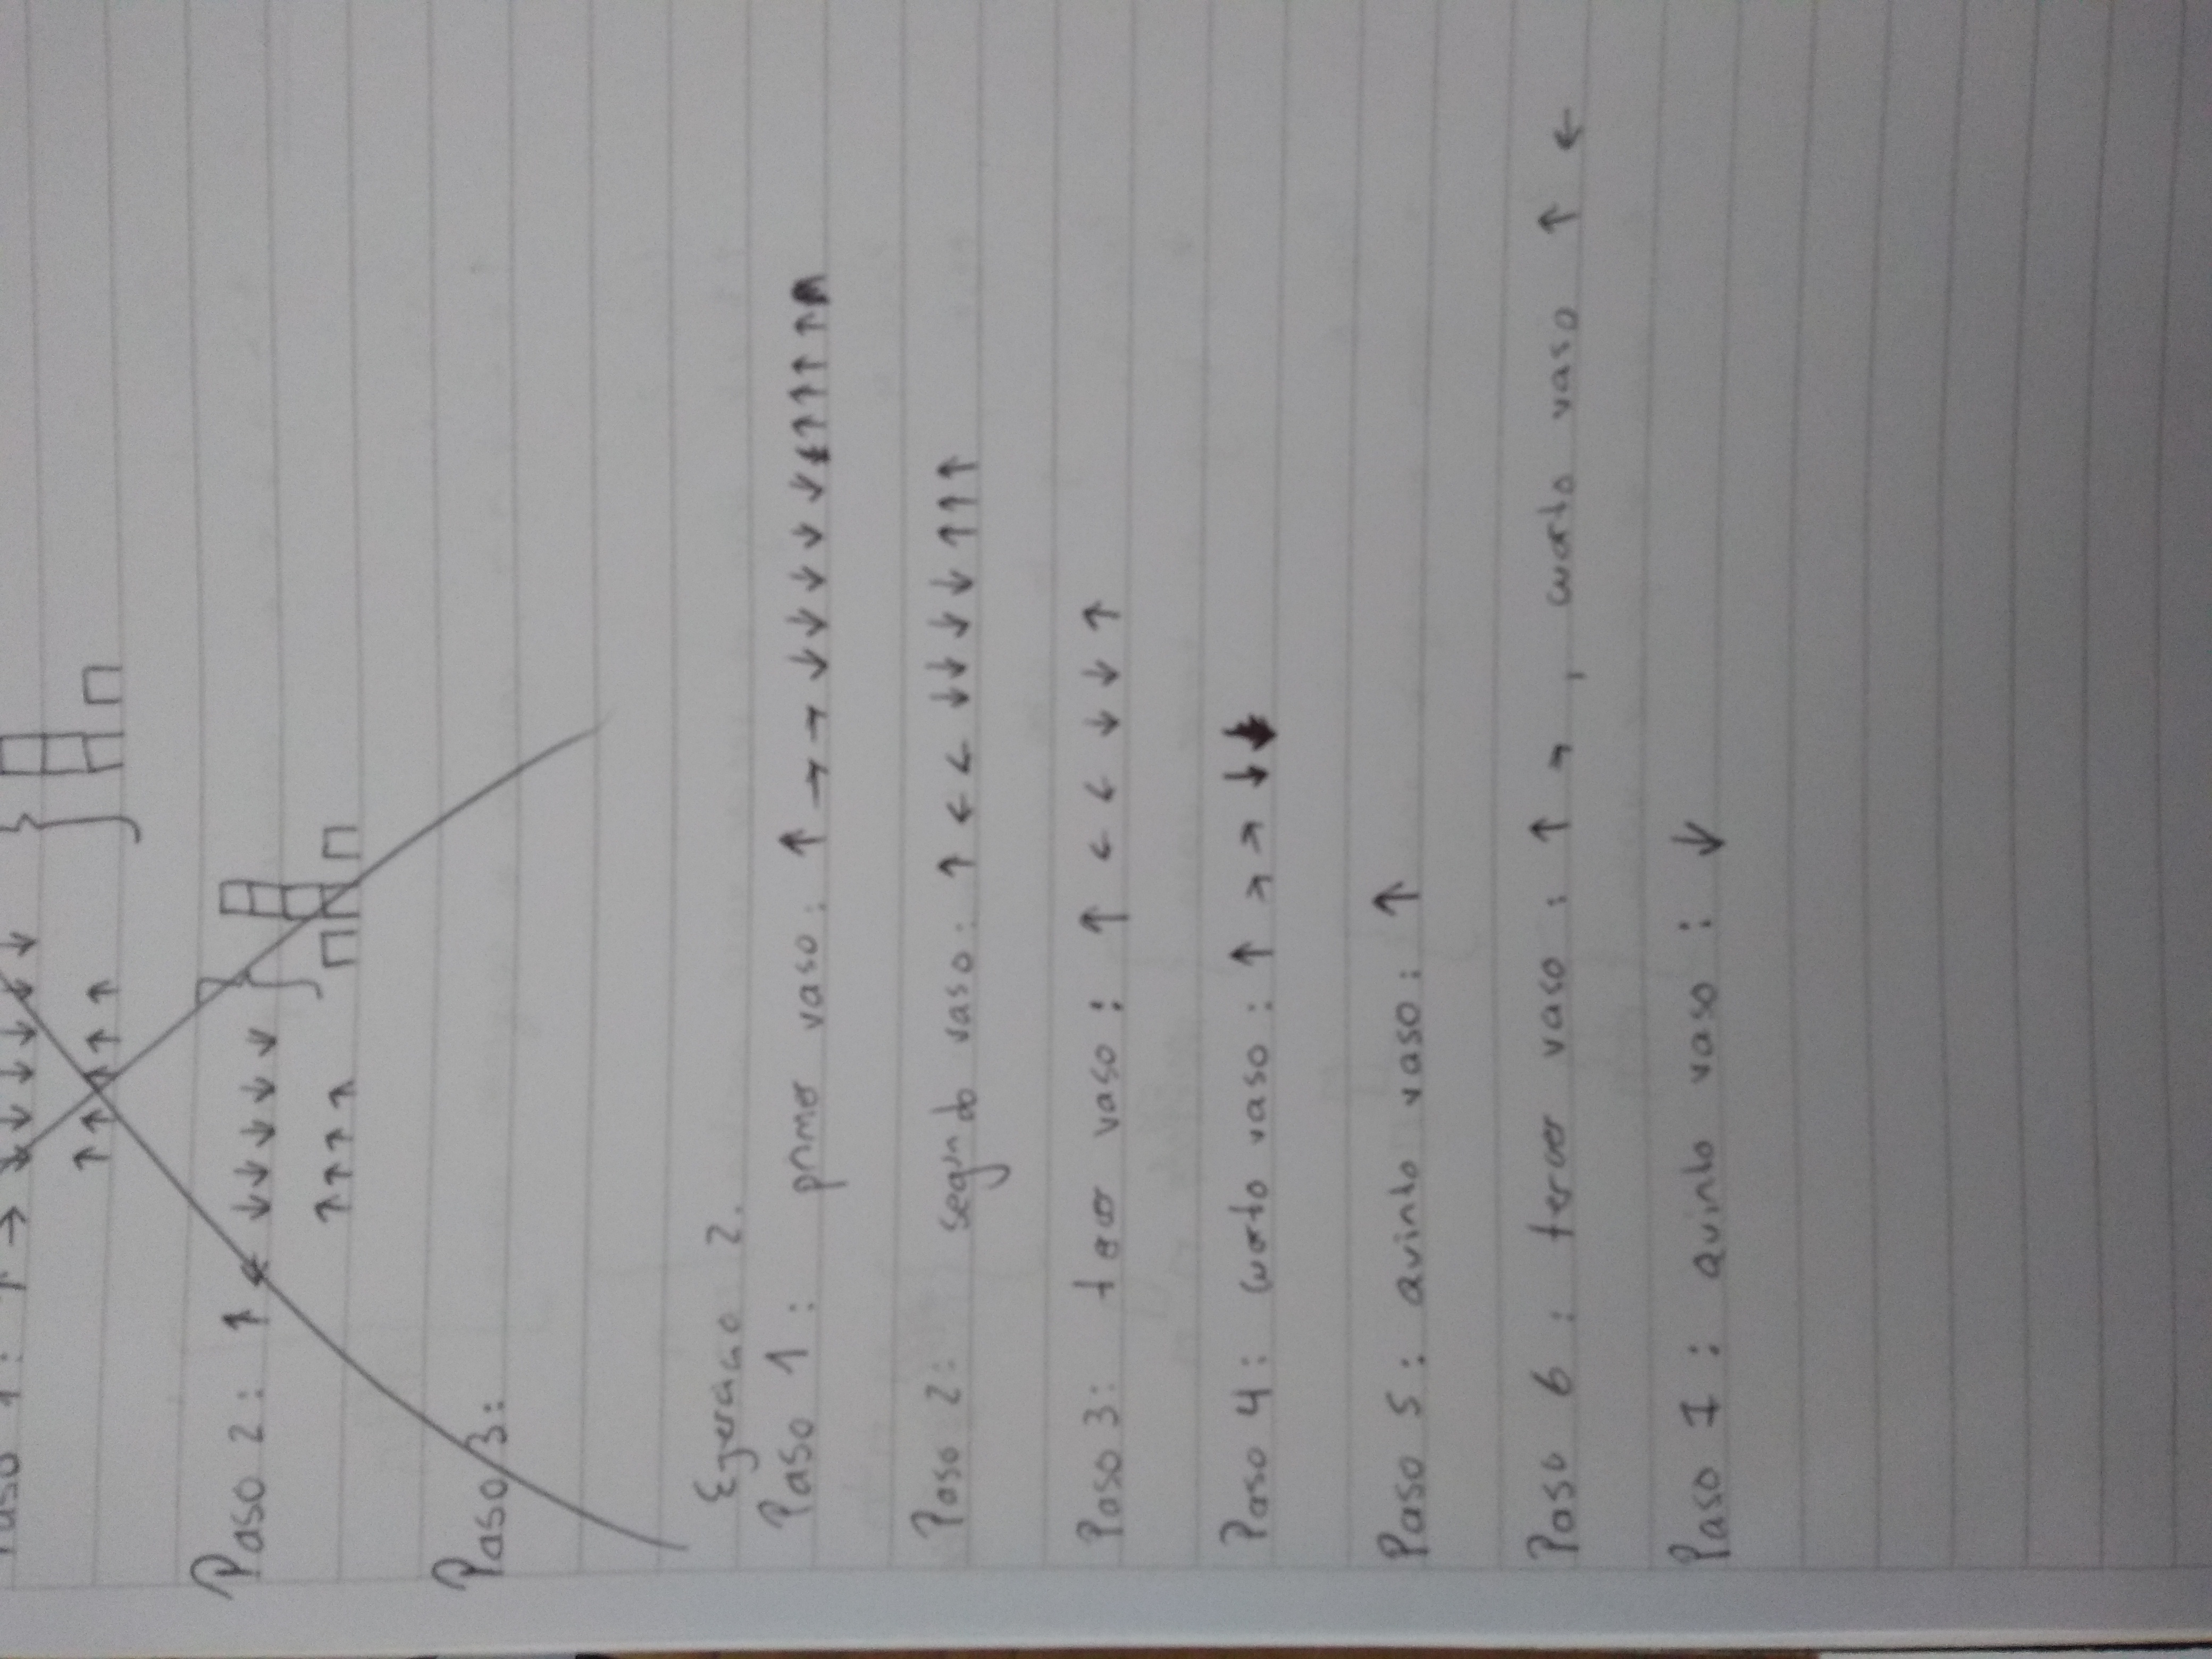 Paso 1: ↑ → ↓ ↓ ↓ ↓ ↓ ↓
↑ ↑ ↑ ↑ ↑
Paso 2: ↑ ← ↓ ↓ ↓ ↓ ↓
↑ ↑ ↑ ↑
Paso 3:
Egercicio 2.
Paso 1: primer vaso: ↑ → → ↓ ↓ ↓ ↓ ↓ ↑ ↑ ↑ ↑
Paso 2: segundo vaso: ↑ ← ← ↓ ↓ ↓ ↓ ↑ ↑ ↑
Paso 3: tercer vaso: ↑ ← ← ↓ ↓ ↑
Paso 4: cuarto vaso: ↑ → → ↓ ↓
Paso 5: quinto vaso: ↑
Paso 6: tercer vaso: ↑ →, cuarto vaso ↑ ←
Paso 7: quinto vaso: ↓